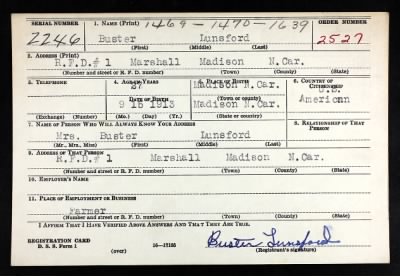 SERIAL NUMBER 1. NAME (Print) 1469-1470-1639 ORDER NUMBER
2246 Buster Lunsford 2527
(First) (Middle) (Last)
2. ADDRESS (Print)
R.F.D.# 1 Marshall Madison N.Car.
(Number and street or R. F. D. number) (Town) (County) (State)
3. TELEPHONE 4. AGE IN YEARS 5. PLACE OF BIRTH 6. COUNTRY OF CITIZENSHIP
27 Madison N.Car. U.S.
DATE OF BIRTH (Town or county)
9 15 1913 Madison N.Car. American
(Exchange) (Number) (Mo.) (Day) (Yr.) (State or country)
7. NAME OF PERSON WHO WILL ALWAYS KNOW YOUR ADDRESS 8. RELATIONSHIP OF THAT PERSON
Mrs. Buster Lunsford
(Mr., Mrs., Miss) (First) (Middle) (Last)
9. ADDRESS OF THAT PERSON
R.F.D.# 1 Marshall Madison N.Car.
(Number and street or R. F. D. number) (Town) (County) (State)
10. EMPLOYER'S NAME
11. PLACE OF EMPLOYMENT OR BUSINESS
Farmer
(Number and street or R. F. D. number) (Town) (County) (State)
I AFFIRM THAT I HAVE VERIFIED ABOVE ANSWERS AND THAT THEY ARE TRUE.
REGISTRATION CARD
D. S. S. Form 1 (over) 16-17105 Buster Lunsford
(Registrant's signature)